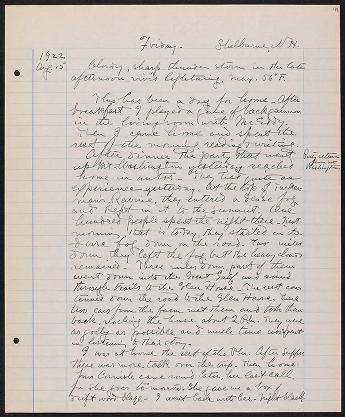 Friday. Shelburne, N.H.
1922
Aug. 15
Cloudy, sharp thunder storm in the late
afternoon vivid lightning, max. 56° F.
This has been a day for home. After
breakfast I played a game of backgammon
in the living room with
Then I came home and spent the
rest of the morning reading & writing.
After dinner the party that went
up Mt. Washington yesterday reached
home in autos. They had quite an
experience yesterday. At the top of Tucker-
man's Ravine, they entered a dense fog
and kept in it to the summit. One
hundred people spent the night there. Next
morning, that is to-day, they started in the
dense fog down on the road. Two miles
down they left the fog but the heavy clouds
remained. Three miles down part of them
went down into the Great Gulf and
through trails to the Glen House. The rest con-
tinued down the road to the Glen House. There
two cars from the farm met them and took them
back, reaching the house about 2 P.M. They were
as jolly as possible and much time was spent
in listening to their story.
I was at home the rest of the P.M. After supper
there was more talk over the trip. Then home.
came round later, her last call,
for she goes to-morrow. She gave me a box of
drift wood blaze. I went back with her. Night black
Party return
from Mt.
Washington